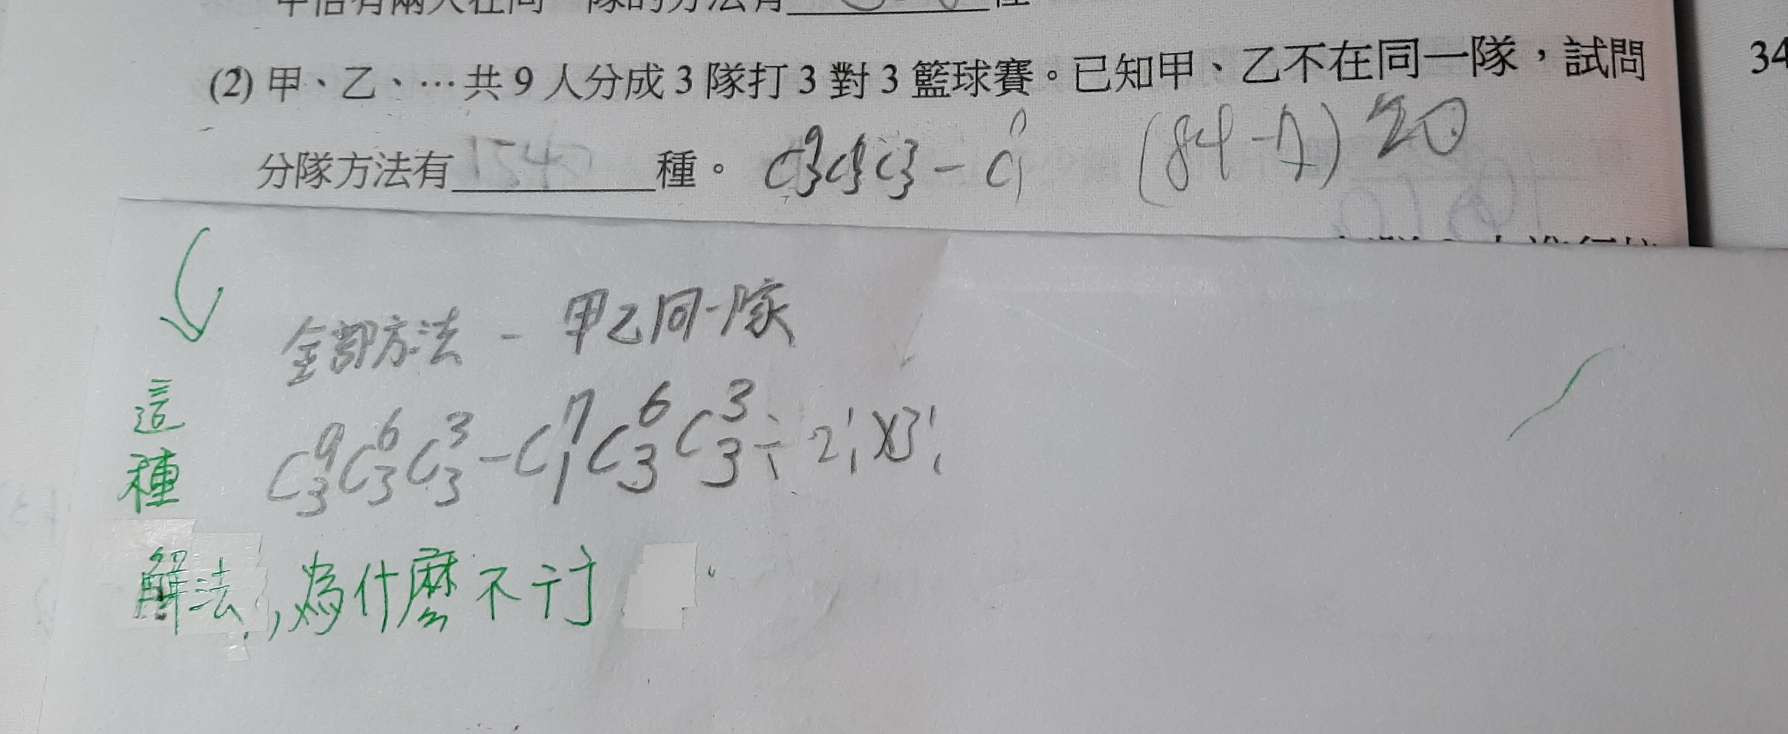 (2) 甲、乙、…共 9 人分成 3 隊打 3 對 3 籃球賽。已知甲、乙不在同一隊,試問
34
分隊方法有 1540 種。 C⁹₃C⁶₃C³₃ − C⁷₁ (84 − 7) 20
全部方法 - 甲乙同一隊
C⁹₃C⁶₃C³₃ − C⁷₁C⁶₃C³₃ ÷ 2! × 3!
這種
解法,為什麼不行